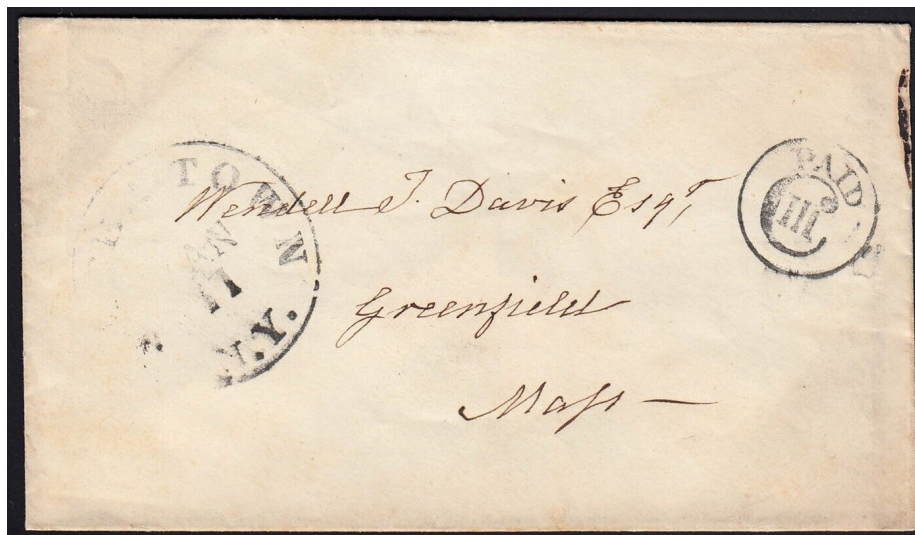 TOWN
JAN
17
N.Y.
Wendell T. Davis Esqr,
Greenfield
Mass —
PAID
III